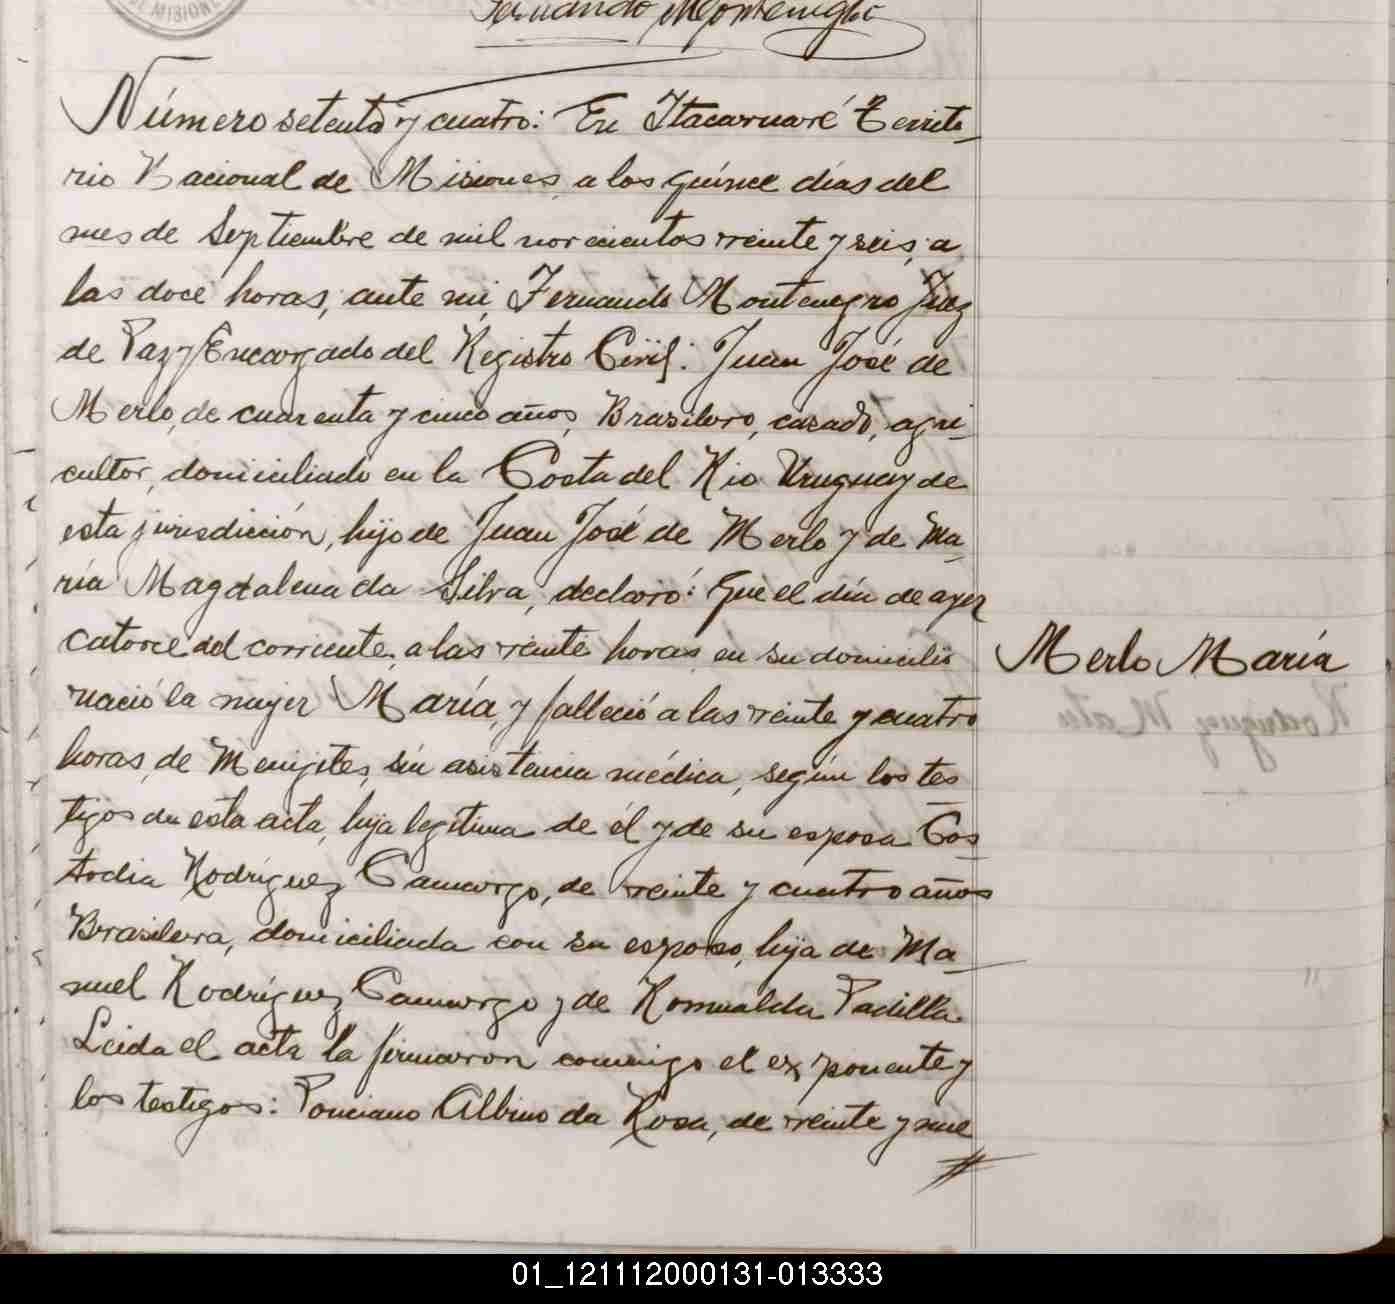 DE MISIONE
Fernando Montenegro
Número setenta y cuatro: En Itacaruaré Territo-
rio Nacional de Misiones, a los quince días del
mes de Septiembre de mil novecientos veinte y seis, a
las doce horas, ante mi, Fernando Montenegro Juez
de Paz y Encargado del Registro Civil: Juan José de
Merlo, de cuarenta y cinco años, Brasilero, casado, agri-
cultor, domiciliado en la Costa del Rio Uruguay de
esta jurisdicción, hijo de Juan José de Merlo y de Ma-
ría Magdalena da Silva, declaró: Que el día de ayer
catorce del corriente, a las veinte horas, en su domicilio
nació la mujer María, y falleció a las veinte y cuatro
horas, de Menijites, sin asistencia médica, según los tes
tigos de esta acta, hija legitima de él y de su esposa Cos-
todia Rodríguez Camargo, de veinte y cuatro años
Brasilera, domiciliada con su esposo, hija de Ma-
nuel Rodríguez Camargo y de Romualda Padilla.
Leida el acta la firmaron conmigo el exponente y
los testigos: Ponciano Albino da Rosa, de veinte y nue
Merlo María
01_121112000131-013333